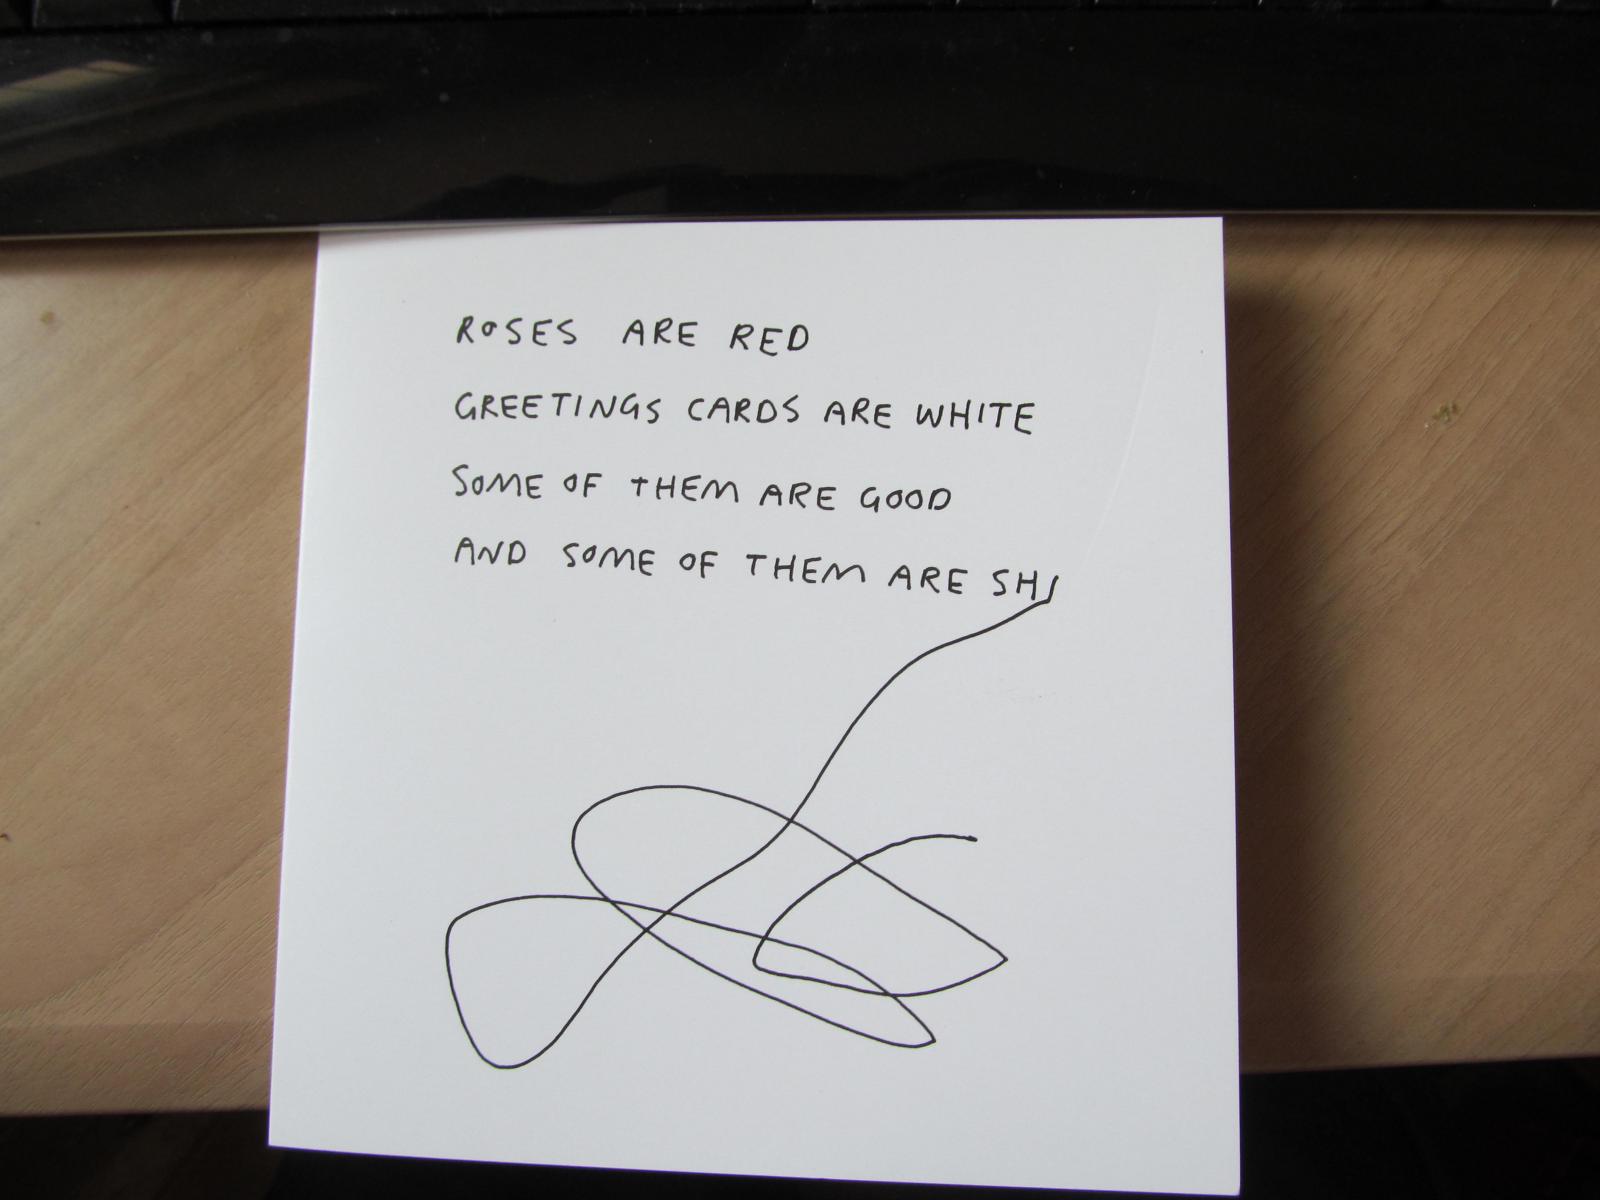 ROSES ARE RED
GREETINGS CARDS ARE WHITE
SOME OF THEM ARE GOOD
AND SOME OF THEM ARE SHI